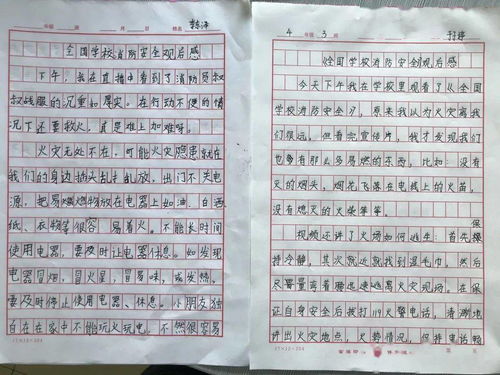 年级 班 年 月 日 姓名 李海
全国学校消防安全观后感
下午，我在直播中看到了消防员叔
叔战服的沉重如厚实。在行动不便的情
况下还要救火，真是难上加难呀。
火灾无处不在，可能火灾隐患就在
我们的身边插头乱扎乱放，出门不关电
源，把易燃燃物放在电器上如油、白酒、
纸、衣物等很容易着火。不能长时间
使用电器，要及时让电器休息。如发现
电器冒烟，冒火星，冒易味，或发热。
要及时停止使用电器、休息。小朋友独
自在在家中不能玩火玩电。不然很容易
17×12=204
4 年级 3 班
《全国学校消防安全》观后感
今天下午我在学校里观看了从全国
学校消防安全》，原来我以为火灾离我
们很远，但看完宣传片，我才发现我们
也有那么多易燃的东西，比如：没有
灭的烟头，烟花飞落在电线上的火苗，
没有熄灭的火柴等等。
视频还讲了火场如何逃生：首先保
持冷静，其次就近就找到湿毛巾。然后
尽量弯着腰迅速逃离火灾现场。在保
证自身安全后拨打119火警电话，清晰地
讲出火灾地点，火势情况，但持电话畅
17×12=204
第 页